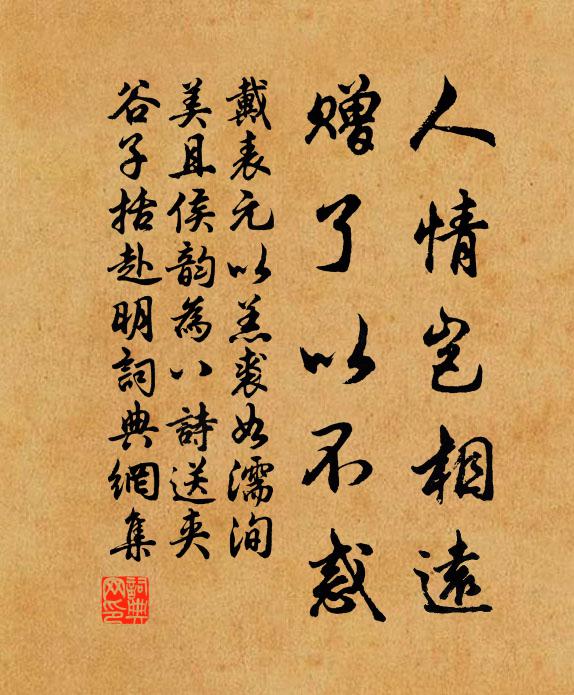 人情岂相遠
贈了以不惑
戴表元以羔裘如濡洵
美且侯韵為八詩送夾
谷子括赴明詞典網集
詞典网印